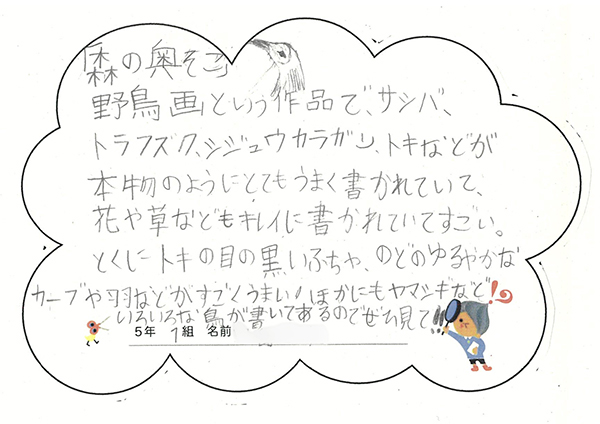 「森の奥そこ」
野鳥画という作品で、サシバ、
トラフズク、シジュウカラガン、トキなどが
本物のようにとてもうまく書かれていて、
花や草などもキレイに書かれていてすごい。
とくにトキの目の黒いふちや、のどのゆるやかな
カーブや羽などがすごくうまい！ほかにもヤマシギなど
いろいろな鳥が書いてあるのでぜひ見て!!
5年 1組 名前